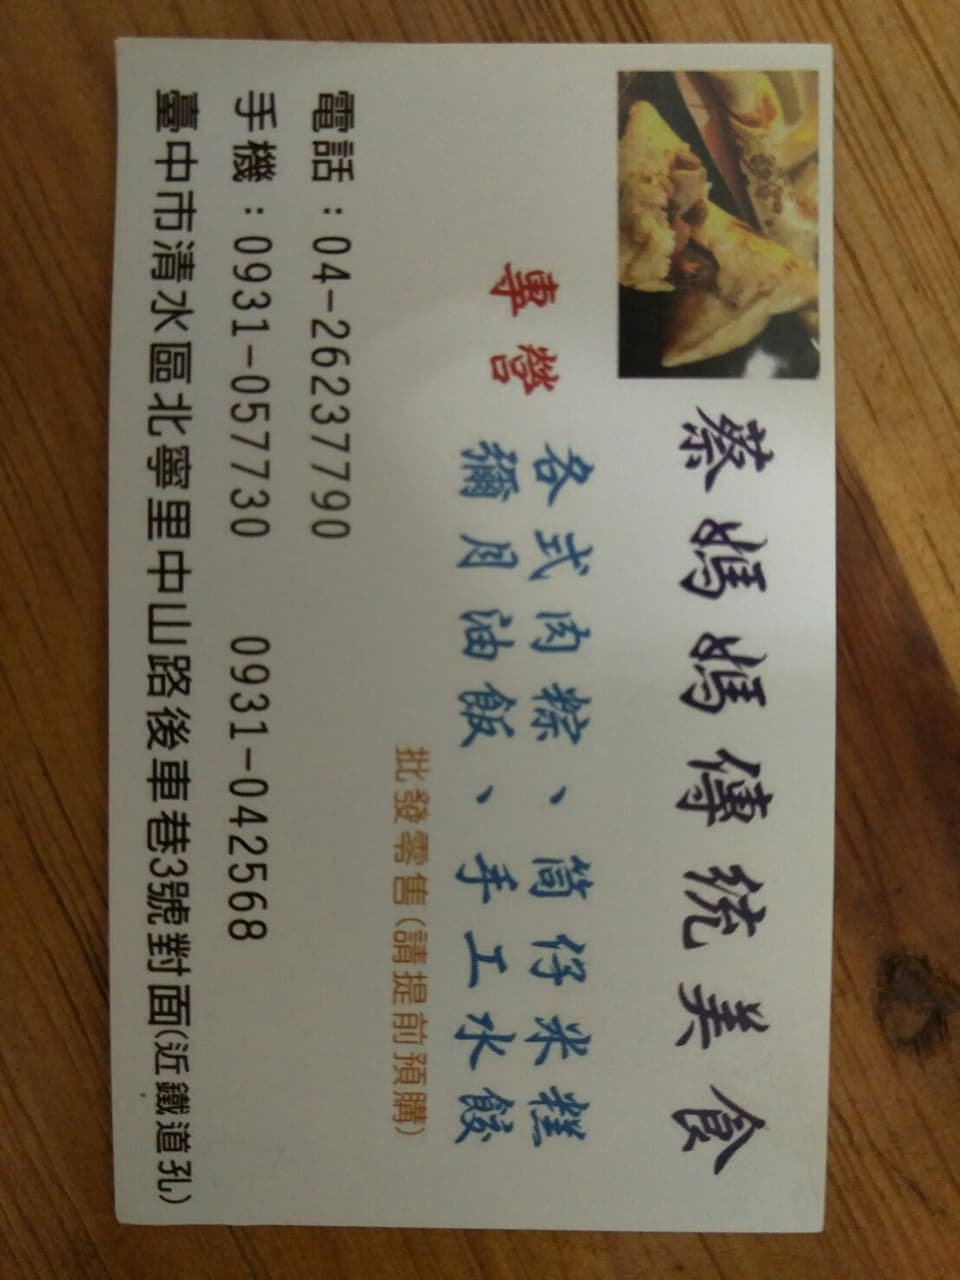 蔡媽媽傳統美食
專營
各式肉粽、筒仔米糕
彌月油飯、手工水餃
批發零售(請提前預購)
電話：04-26237790
手機：0931-057730　0931-042568
臺中市清水區北寧里中山路後車巷3號對面(近鐵道孔)